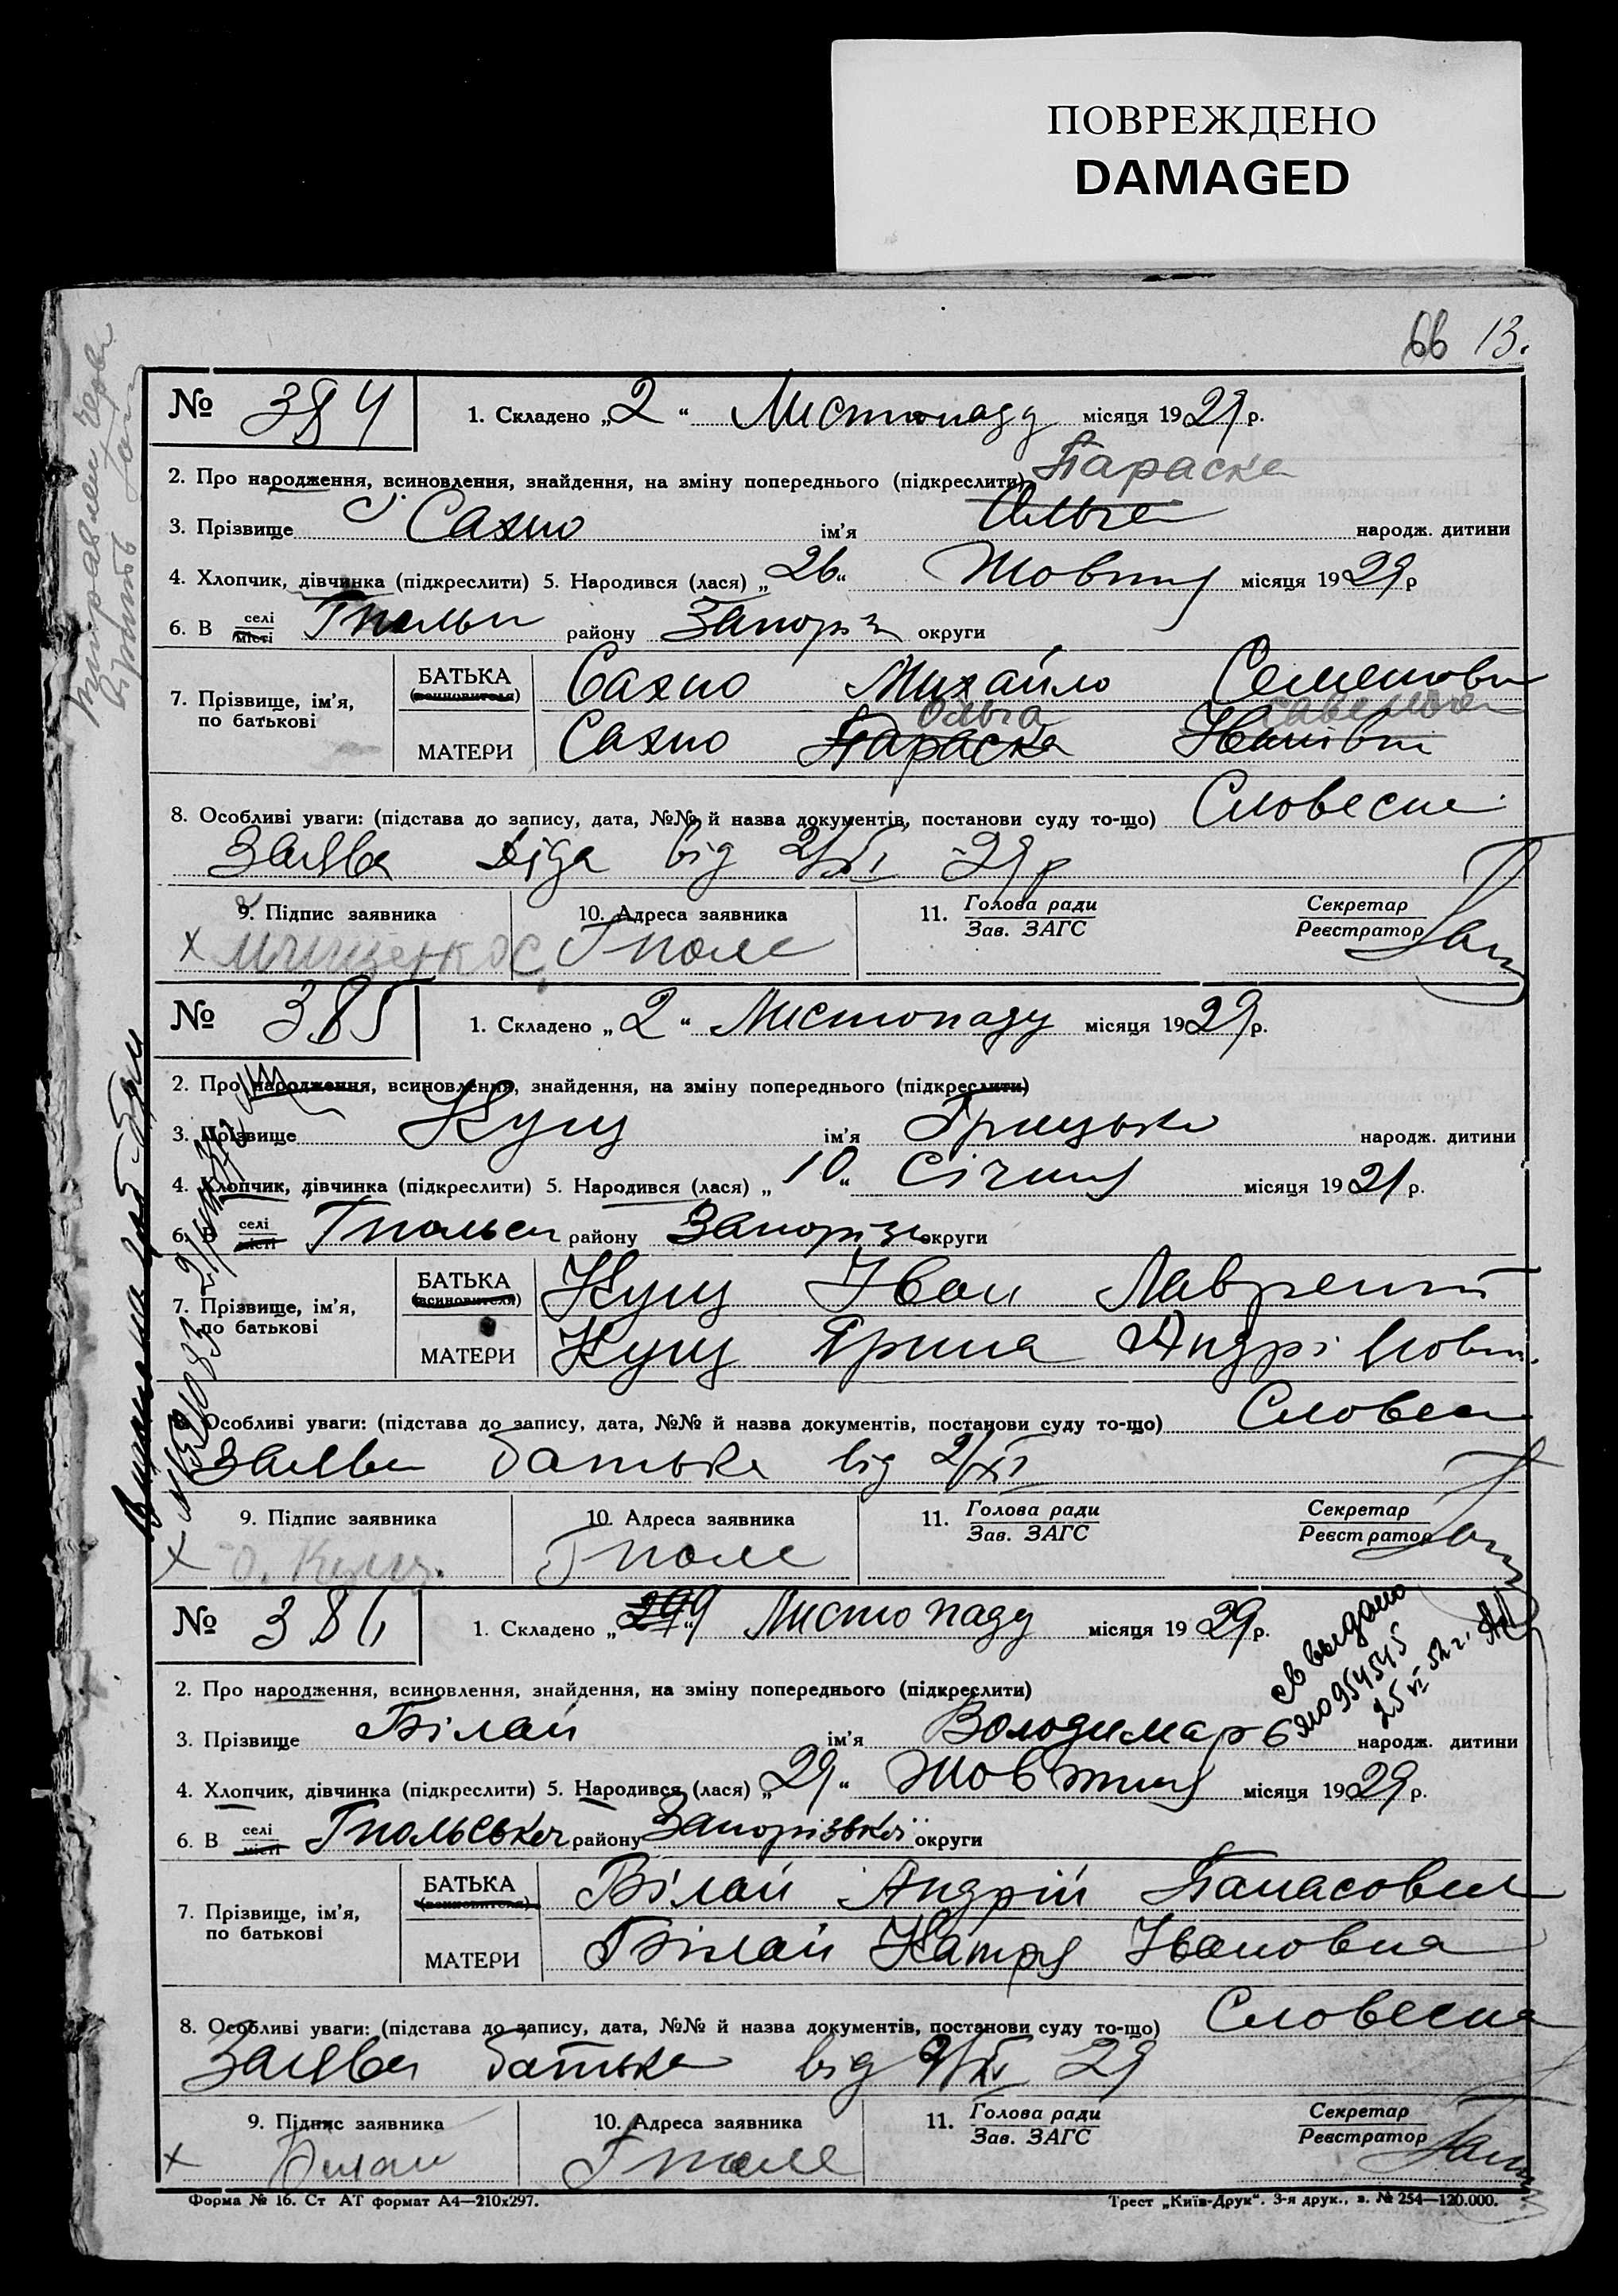 ПОВРЕЖДЕНО
DAMAGED
66 13.
№ 384
1. Складено „2“ Листопаду місяця 1929 р.
2. Про народження, всиновлення, знайдення, на зміну попереднього (підкреслити) Параска
3. Прізвище Сахно ім’я Ольга народж. дитини
4. Хлопчик, дівчинка (підкреслити) 5. Народився (лася) „26“ Жовтня місяця 1929 р
6. В селі місті Гпольськ району Запоріз округи
7. Прізвище, ім’я, по батькові
БАТЬКА (всиновителя) Сахно Михайло Семенович
Ольга
МАТЕРИ Сахно Параска Іванівна
8. Особливі уваги: (підстава до запису, дата, №№ й назва документів, постанови суду то-що) Словесна
Заява діда від 2/XI -29 р
9. Підпис заявника 10. Адреса заявника 11. Голова ради Зав. ЗАГС Секретар Реєстратор
х Гполе
№ 385
1. Складено „2“ Листопаду місяця 1929 р.
2. Про народження, всиновлення, знайдення, на зміну попереднього (підкреслити)
3. Прізвище Кущ ім’я Грицько народж. дитини
4. Хлопчик, дівчинка (підкреслити) 5. Народився (лася) „10“ Січня місяця 1921 р.
6. В селі місті Гпольськ району Запоріз округи
7. Прізвище, ім’я, по батькові
БАТЬКА (всиновителя) Кущ Іван Лаврент
МАТЕРИ Кущ Ярина Андріівовн.
8. Особливі уваги: (підстава до запису, дата, №№ й назва документів, постанови суду то-що) Словесн
Заява батька від 2/XI
9. Підпис заявника 10. Адреса заявника 11. Голова ради Зав. ЗАГС Секретар Реєстратор
х Кущ. Гполе
№ 386
1. Складено „9“ Листопаду місяця 1929 р.
св выдано
ЯЮ 954545
25 VI 52 г.
2. Про народження, всиновлення, знайдення, на зміну попереднього (підкреслити)
3. Прізвище Білай ім’я Володимар народж. дитини
4. Хлопчик, дівчинка (підкреслити) 5. Народився (лася) „29“ Жовтня місяця 1929 р.
6. В селі місті Гпольська району Запорізької округи
7. Прізвище, ім’я, по батькові
БАТЬКА (всиновителя) Білай Андрій Панасович
МАТЕРИ Білай Катря Івановна
8. Особливі уваги: (підстава до запису, дата, №№ й назва документів, постанови суду то-що) Словесна
Заява батька від 9/XI 29
9. Підпис заявника 10. Адреса заявника 11. Голова ради Зав. ЗАГС Секретар Реєстратор
х Билай Гполе
Форма № 16. Ст АТ формат А4—210х297. Трест „Київ-Друк“. 3-я друк., з. № 254—120.000.